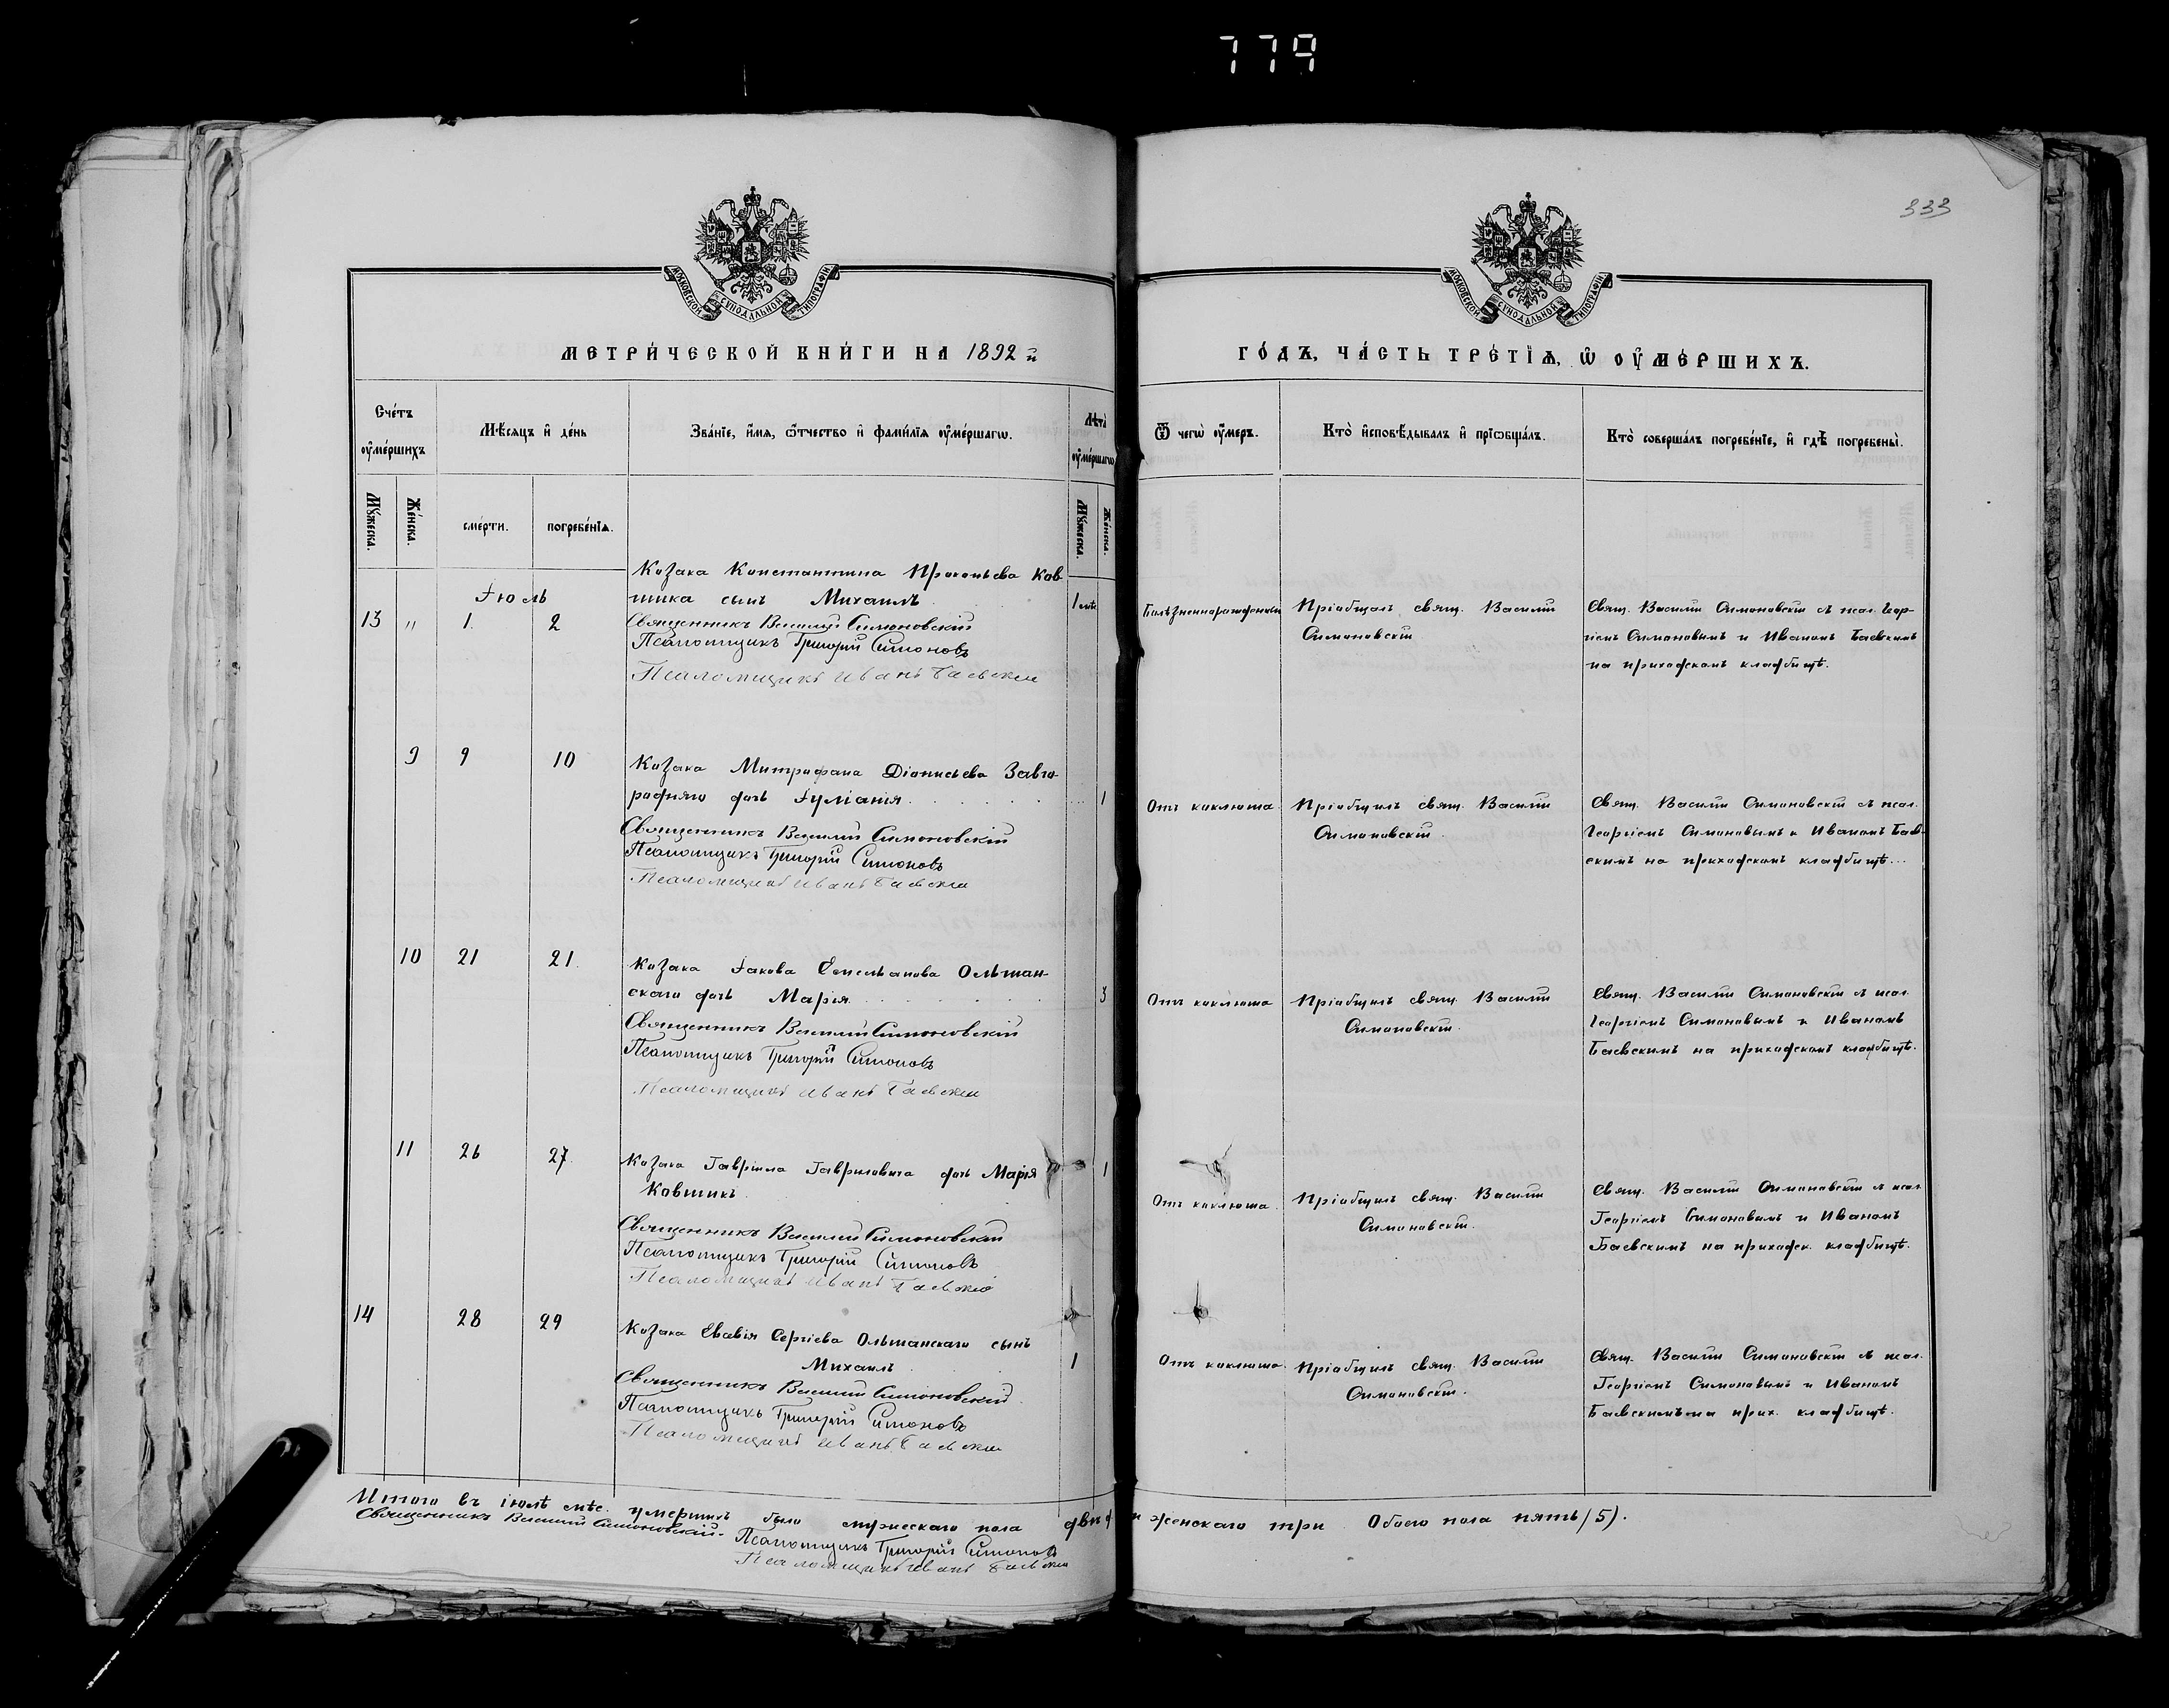 779
333
МОСКОВСКОЙ СѴНОДАЛЬНОЙ ТИПОГРАФІИ
МОСКОВСКОЙ СѴНОДАЛЬНОЙ ТИПОГРАФІИ
МЕТРИ́ЧЕСКОЙ КНИ́ГИ НА 1892 й
ГО́ДЪ, ЧА́СТЬ ТРЕ́ТІѦ, Ѡ ОУ҆МЕ́РШИХЪ.
Сче́тъ оу҆ме́ршихъ
Мѣ́сяцъ и҆ де́нь
Зва́ніе, и҆́мя, ѻ҆́тчество и҆ фами́лія оу҆ме́ршагѡ.
Лѣта̀ оу҆ме́ршагѡ
Ѿ чегѡ̀ оу҆́меръ.
Кто̀ и҆сповѣ́дывалъ и҆ прїѡбща́лъ.
Кто̀ соверша́лъ погребе́нїе, и҆ гдѣ̀ погребены̀.
Мꙋ́жеска.
Же́нска.
сме́рти.
погребе́нїѧ.
Мꙋ́жеска.
Же́нска.
Іюль
13 " 1. 2
Козака Константина Прокопьева Ков
шика сынъ Михаилъ
1
Священникъ Василій Симоновскій
Псаломщикъ Григорій Симоновъ
Псаломщикъ Иванъ Баевскій
Болѣзненнорожденный
Пріобщалъ свящ. Василій
Симоновскій
Свящ. Василій Симоновскій съ псал. Геор-
гіемъ Симоновымъ и Иваномъ Баевскимъ
на приходскомъ кладбищѣ.
9 9 10
Козака Митрофана Діонисьева Завго-
родняго дочь Іуліанія
1
Священникъ Василій Симоновскій
Псаломщикъ Григорій Симоновъ
Псаломщикъ Иванъ Баевскій
Отъ коклюша.
Пріобщилъ свящ. Василій
Симоновскій.
Свящ. Василій Симоновскій съ псал.
Георгіемъ Симоновымъ и Иваномъ Баев-
скимъ на приходскомъ кладбищѣ...
10 21 21.
Козака Іакова Емельянова Ольшан-
скаго дочь Марія
3
Священникъ Василій Симоновскій
Псаломщикъ Григорій Симоновъ
Псаломщикъ Иванъ Баевскій
Отъ коклюша
Пріобщилъ свящ. Василій
Симоновскій.
Свящ. Василій Симоновскій съ псал.
Георгіемъ Симоновымъ и Иваномъ
Баевскимъ на приходскомъ кладбищѣ.
11 26 27.
Козака Гавріила Гавриловича дочь Марія
Ковшикъ
1
Священникъ Василій Симоновскій
Псаломщикъ Григорій Симоновъ
Псаломщикъ Иванъ Баевскій
Отъ коклюша.
Пріобщилъ свящ. Василій
Симоновскій.
Свящ. Василій Симоновскій съ псал.
Георгіемъ Симоновымъ и Иваномъ
Баевскимъ на приходск. кладбищѣ.
14 28 29
Козака Сергіева Ольшанскаго сынъ
Михаилъ
1
Священникъ Василій Симоновскій.
Псаломщикъ Григорій Симоновъ
Псаломщикъ Иванъ Баевскій
Отъ коклюша.
Пріобщилъ свящ. Василій
Симоновскій.
Свящ. Василій Симоновскій съ псал.
Георгіемъ Симоновымъ и Иваномъ
Баевскимъ на прих. кладбищѣ.
Итого въ іюлѣ мѣс. умершихъ было мужескаго пола два и женскаго три Обоего пола пять (5).
Священникъ Василій Симоновскій.
Псаломщикъ Григорій Симоновъ
Псаломщикъ Иванъ Баевскій